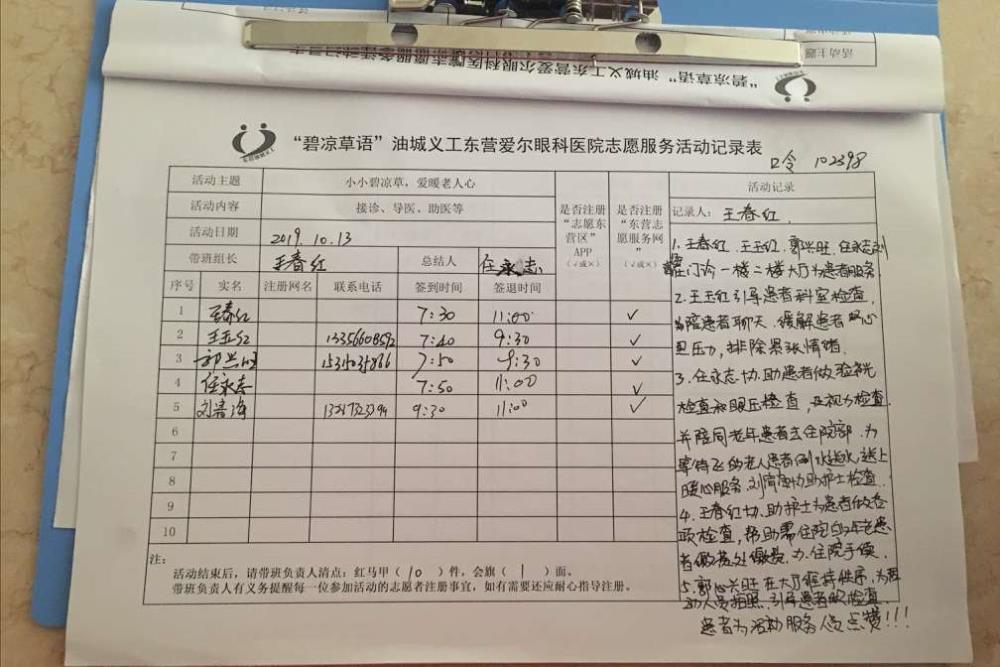 “碧凉草语”油城义工东营爱尔眼科医院志愿服务活动记录表
“碧凉草语”油城义工东营爱尔眼科医院志愿服务活动记录表
口令 102398
活动主题 小小碧凉草，爱暖老人心 是否注册“志愿东营区”APP（√或×） 是否注册“东营志愿服务网”（√或×） 活动记录
活动内容 接诊、导医、助医等 记录人：王春红
活动日期 2019.10.13
带班组长 王春红 总结人 任永志
序号 实名 注册网名 联系电话 签到时间 签退时间
1 王春红 7:30 11:00 ✓
2 王玉红 13356608592 7:40 9:30 ✓
3 郭兴旺 7:50 9:30 ✓
4 任永志 7:50 11:00 ✓
5 刘青海 9:30 11:00 ✓
6
7
8
9
10
注：
活动结束后，请带班负责人清点：红马甲（10）件，会旗（1）面。
带班负责人有义务提醒每一位参加活动的志愿者注册事宜，如有需要还应耐心指导注册。
1.王春红、王玉红、郭兴旺、任永志刘
在门诊一楼二楼大厅为患者服务
2.王玉红引导患者科室检查，
陪患者聊天，缓解患者心
理压力，排除紧张情绪．
3.任永志协助患者做验光
检查和眼压检查，及视力检查
并陪同老年患者去住院部．为
等待的老人患者倒水送水，送上
暖心服务．刘青海协助护士检查．
4.王春红协助护士为患者做各
项检查，帮助需住院的老患
者缴费处缴费．办住院手续．
5.郭兴旺在大厅维持秩序．为
人员拍照．引导患者做检查．
患者为活动服务人员点赞!!!